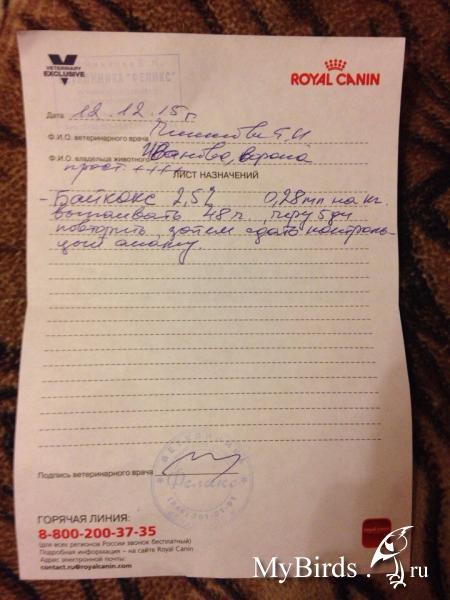 VETERINARY
EXCLUSIVE
ROYAL CANIN
КЛИНИКА "ФЕЛИКС"
Дата 12.12.15г
Ф.И.О. ветеринарного врача
Ф.И.О. владельца животного Иванова, ворона
прост ++++
ЛИСТ НАЗНАЧЕНИЙ
- Байкокс 2,5% 0,28мл на кг.
выпаивать 48ч, через 5дн
повторить, затем сдать контроль-
ный анализ.
Подпись ветеринарного врача
ВЕТЕРИНАР
Феликс
ГОРЯЧАЯ ЛИНИЯ:
8-800-200-37-35
(для всех регионов России звонок бесплатный)
Подробная информация – на сайте Royal Canin
Адрес электронной почты:
contact.ru@royalcanin.com
MyBirds.ru